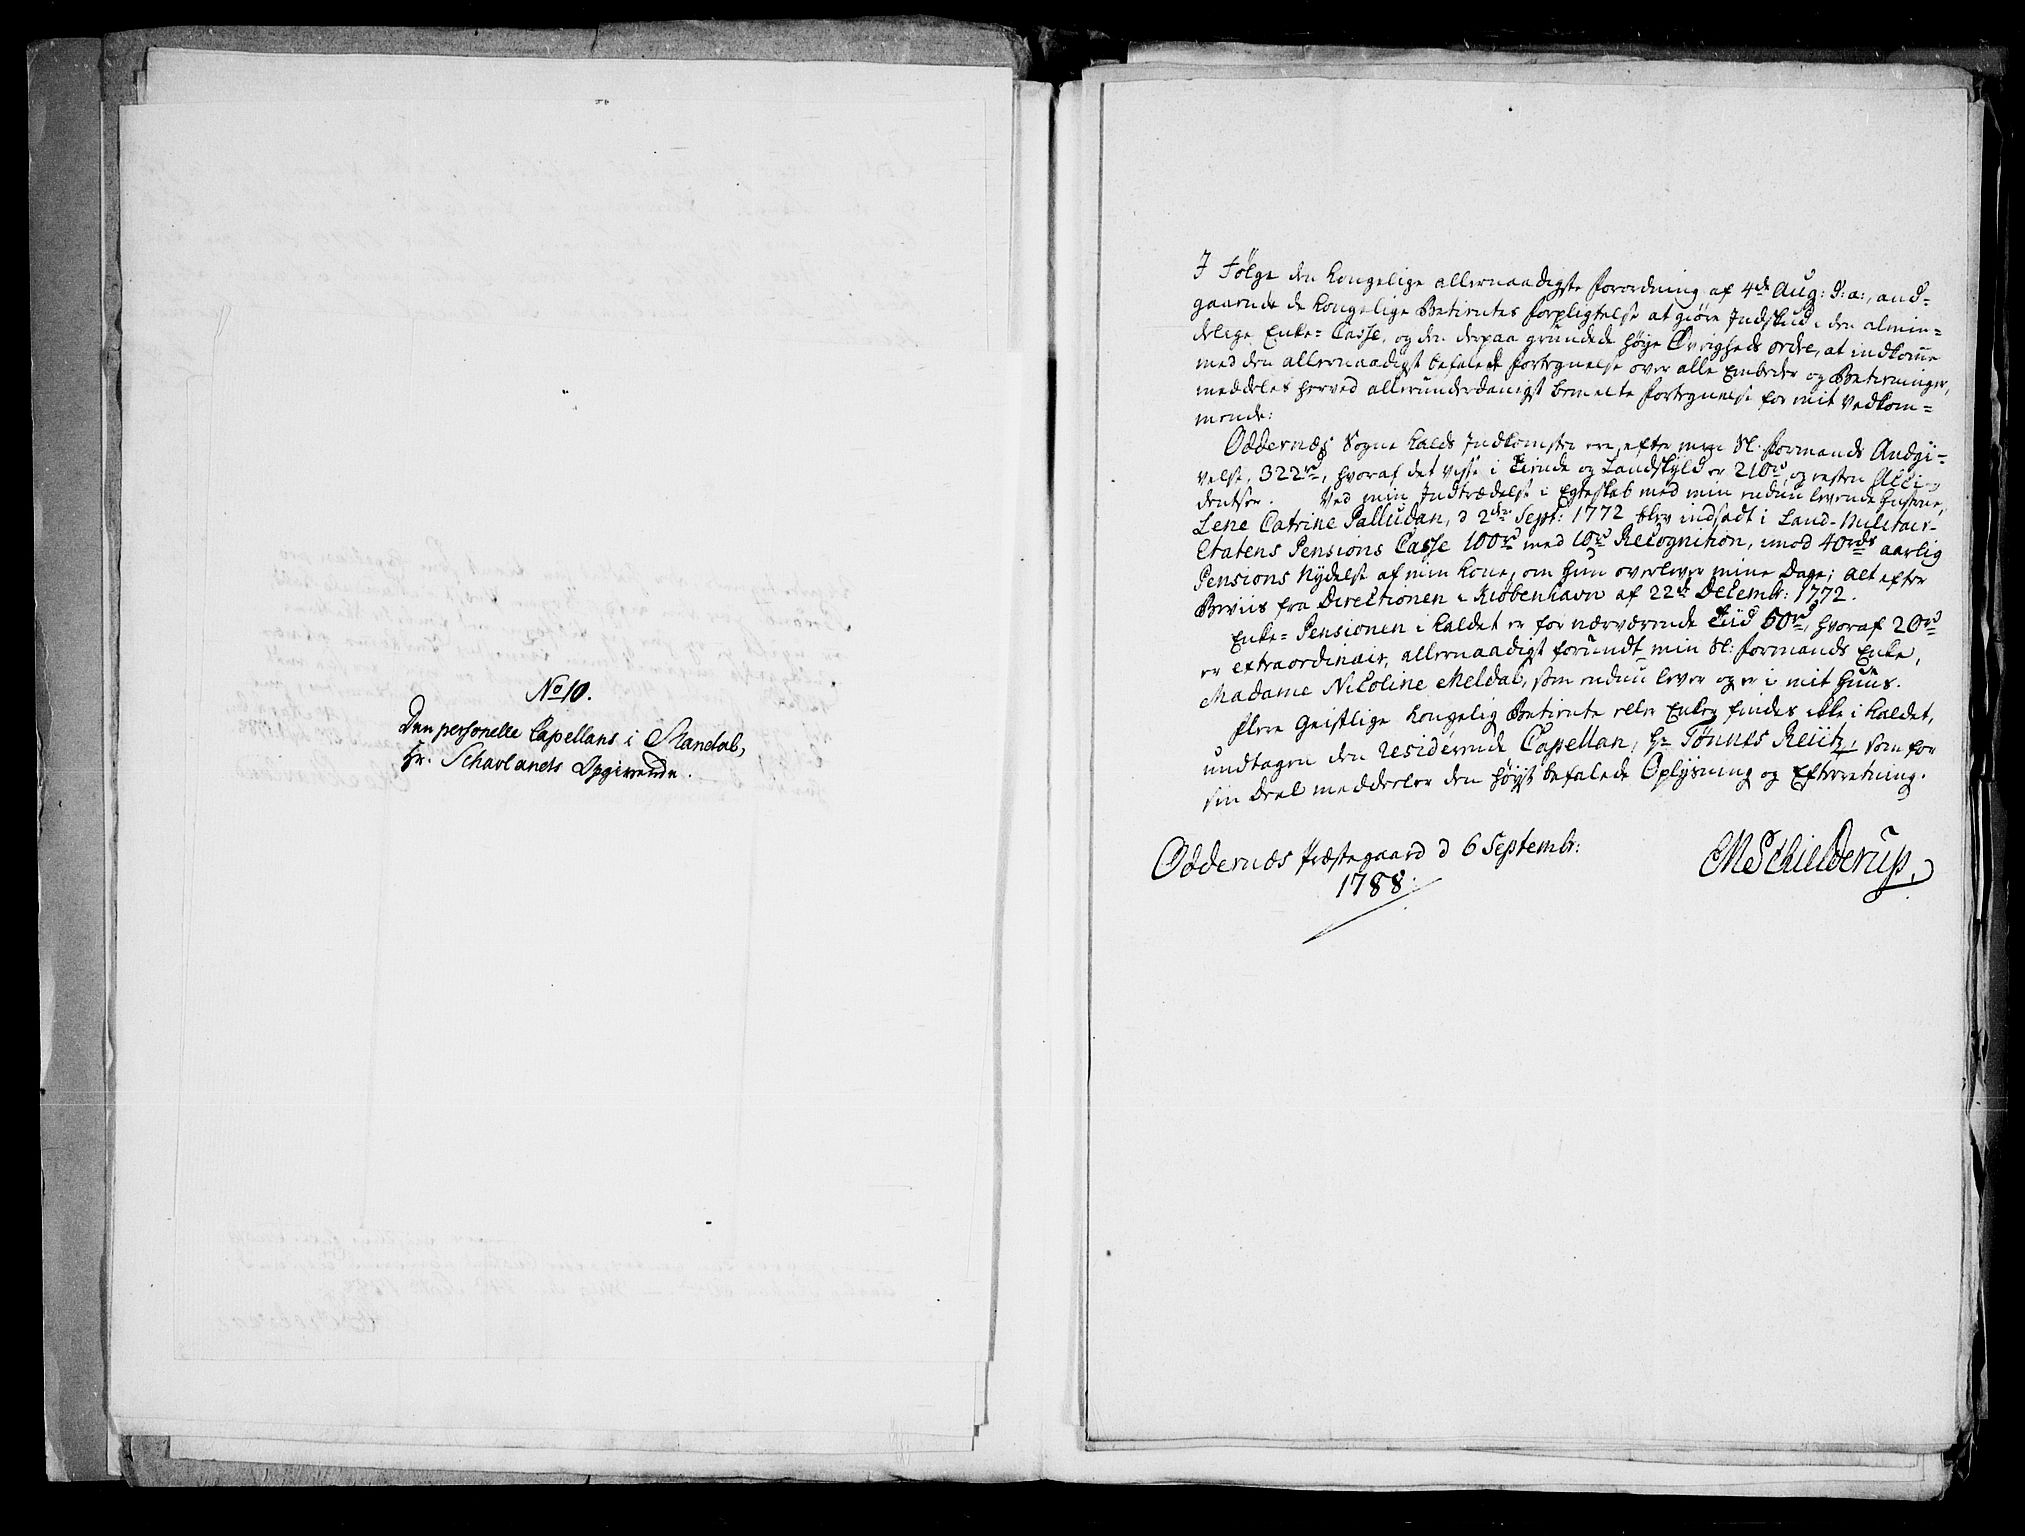 No 10.
Den personelle Capellans i Mandal,
Hr. Schavlands Opgivende.
I Følge den kongelige allernaadigste Forordning af 4de Aug: d: a:, and=
gaaende de kongelige Betientes Forpligtelse at giøre Indskud i den almin=
delige Enke=Casse, og den derpaa grundede høje Øvrigheds ordre, at indkomme
med den allernaadigst befalede Fortegnelse over alle Embeder og Betieninger,
meddeles herved allerunderdanigst bemelte Fortegnelse for mit Vedkom=
mende:
Oddernæs Sogne Kalds Indkomster ere, efter min Sl: Formands Andgi=
velse, 322rd, hvoraf det visse i Tiende og Landskyld er 210rd, og resten Acci=
dentser. Ved min Indtrædelse i Egteskab med min endnu levende Hustrue,
Lene Catrine Palludan, d 2den Sept: 1772 blev indsadt i Land-Militair-
Etatens Pensions Casse 100rd med 10rd Recognition, imod 40rds aarlig
Pensions Nydelse af min Kone, om hun overlever mine Dage; alt efter
Beviis fra Directionen i Kiøbenhavn af 22de Decembr: 1772.
Enke=Pensionen i Kaldet er for nærværende Tiid 50rd, hvoraf 20rd
er extraordinair, allernaadigst forundt min Sl: Formands Enke,
Madame Nicoline Meldal, som endnu lever og er i mit Huus.
Flere Geistlige kongelig Betiente eller Enker findes ikke i Kaldet,
undtagen den residerende Capellan, Hr Tønnes Reütz, som for
sin Deel meddeeler den høyst befalede Oplysning og Efterretning.
Oddernæs Præstegaard d 6 Septembr:
1788.
MSchielderup.